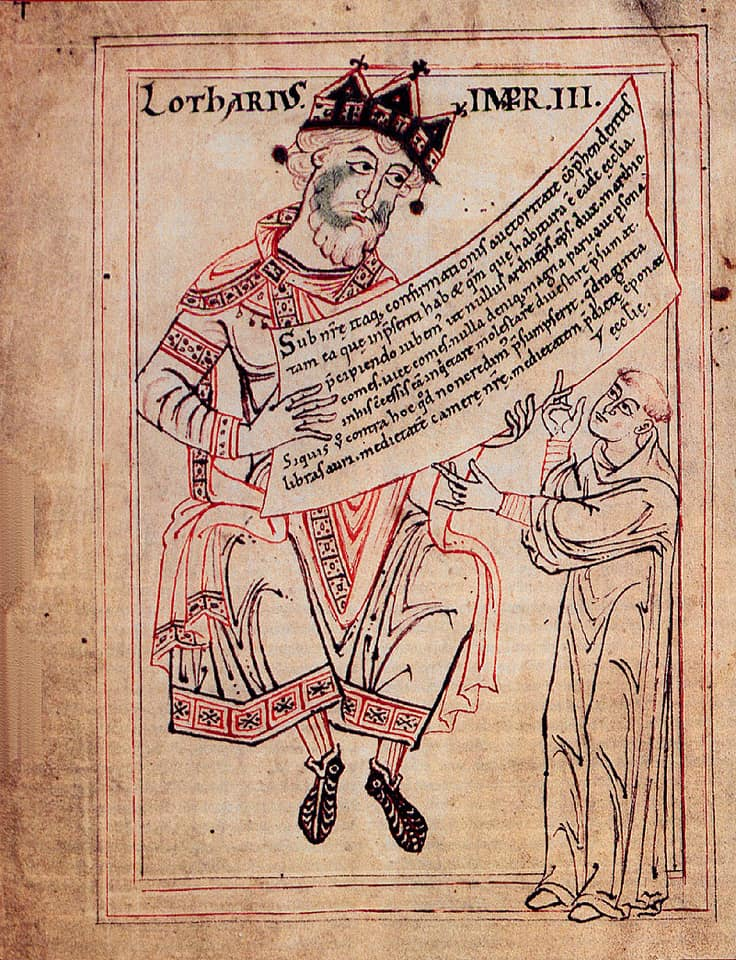 LOTHARIUS. IMPR. III.
Sub nr̄e itaq; confirmationis auctoritate cōp̄hendentes
tam ea que inp̄senti hab& q̄m que habitura ē eadē eccl̄ia.
p̄cipiendo iubem' ut nullus archiep̄s. ep̄s. dux. marchio.
comes. uicecomes. nulla deniq; magna paruaque p̄sona
molestare diuestire p̄sumat.
Siquis contra hoc qd̄ non credim' p̄sumpserit. q̄draginta
libras auri. medietatē camerę nr̄ę. medietatem p̄dictę cōponat
ęccl̄ię.